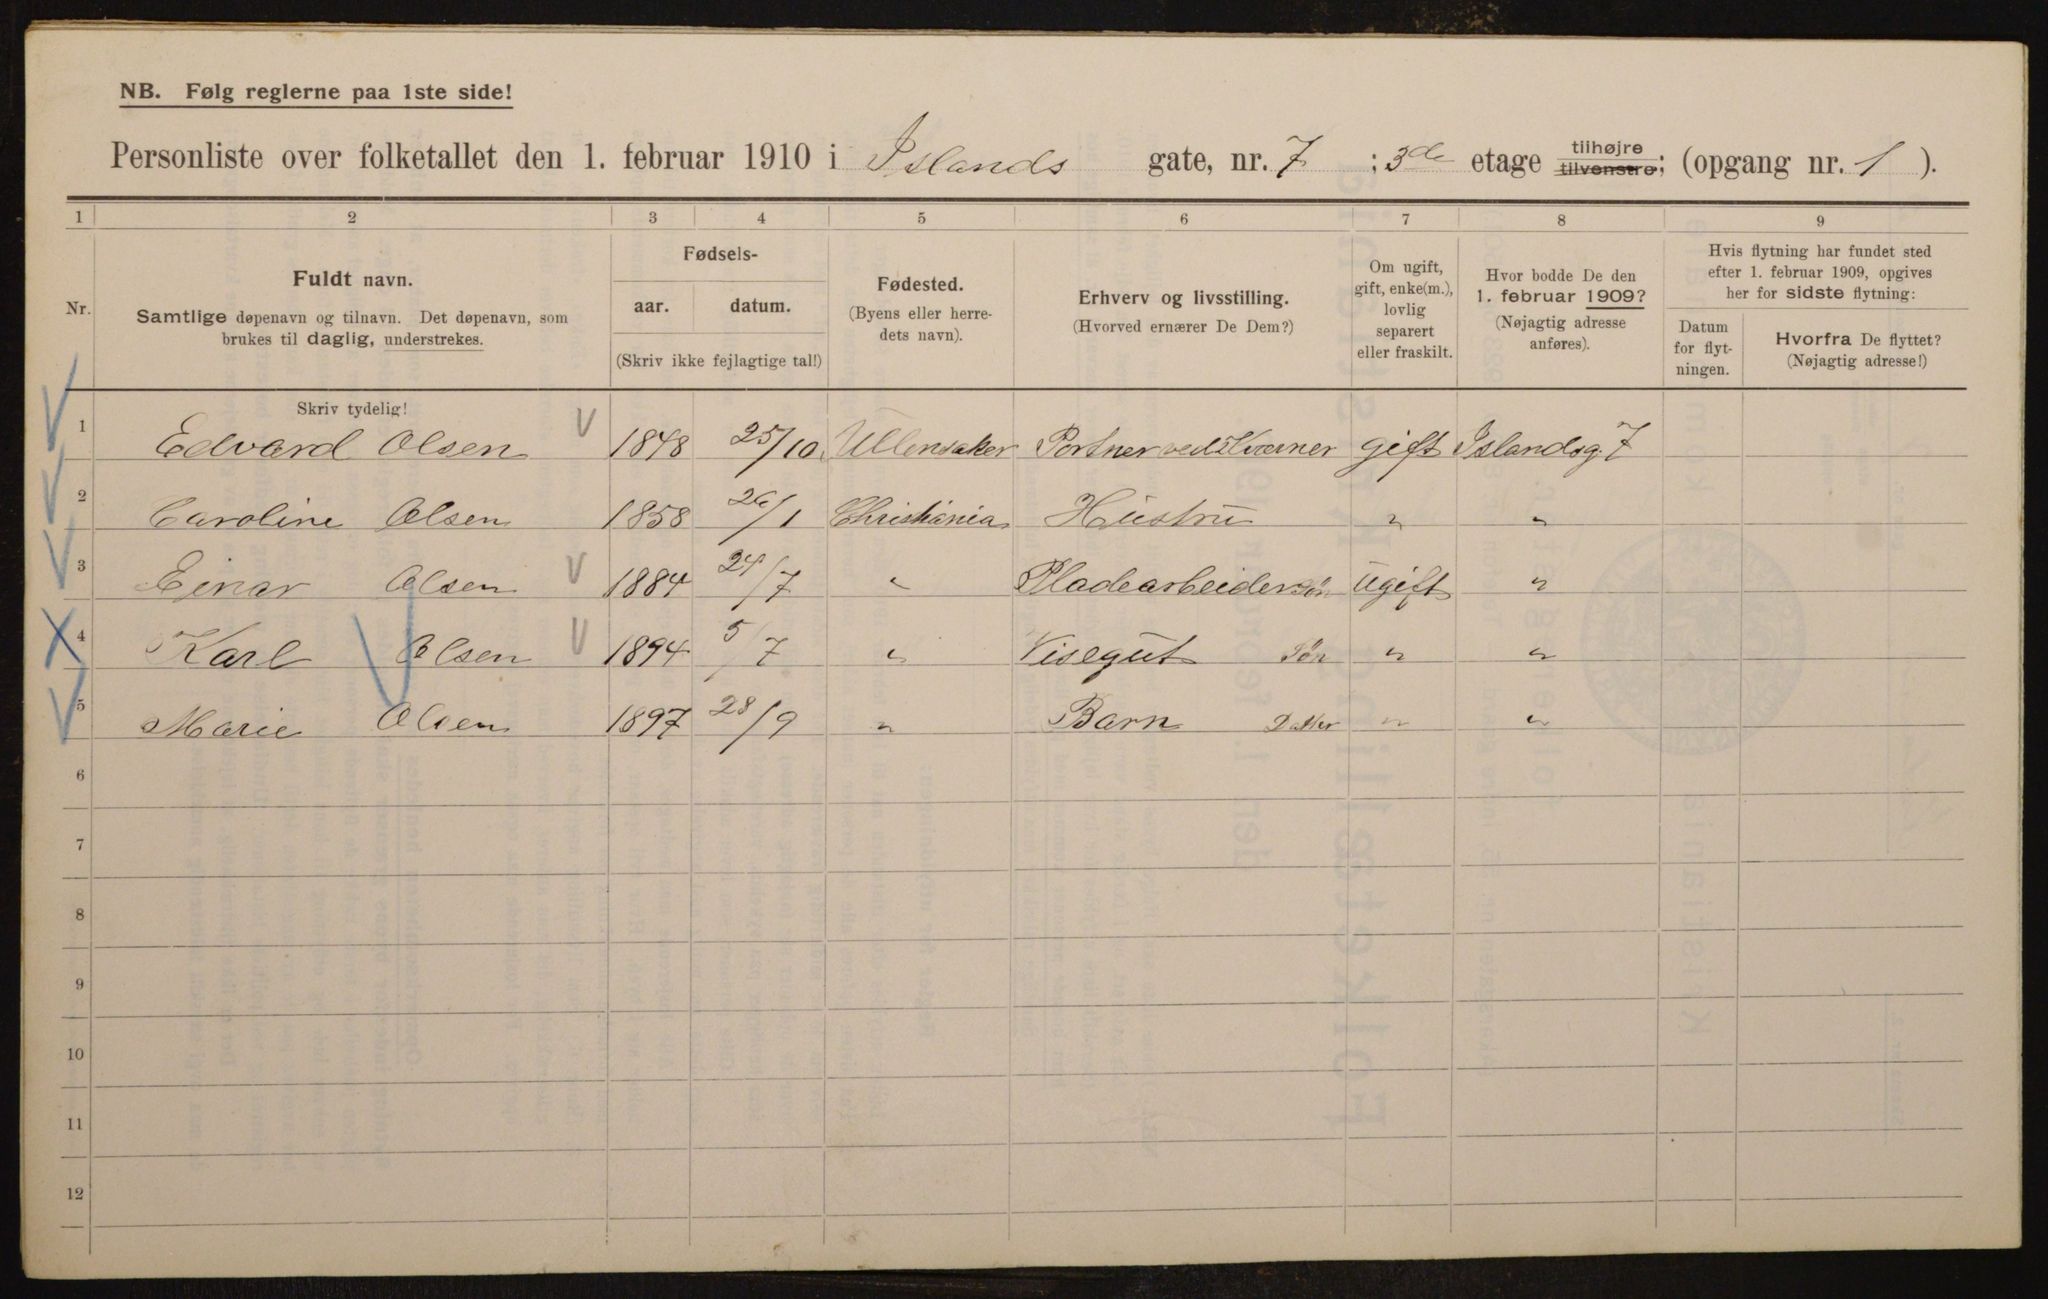 NB. Følg reglerne paa 1ste side!
Personliste over folketallet den 1. februar 1910 i Islands gate, nr. 7 ; 3de etage tilhøjre tilvenstre; (opgang nr. 1 ).
1 2 3 4 5 6 7 8 9
Nr.
Fuldt navn.
Samtlige døpenavn og tilnavn. Det døpenavn, som
brukes til daglig, understrekes.
Fødsels-
aar. datum.
(Skriv ikke fejlagtige tal!)
Fødested.
(Byens eller herre-
dets navn).
Erhverv og livsstilling.
(Hvorved ernærer De Dem?)
Om ugift,
gift, enke(m.),
lovlig
separert
eller fraskilt.
Hvor bodde De den
1. februar 1909?
(Nøjagtig adresse
anføres).
Hvis flytning har fundet sted
efter 1. februar 1909, opgives
her for sidste flytning:
Datum
for flyt-
ningen.
Hvorfra De flyttet?
(Nøjagtig adresse!)
Skriv tydelig!
1 Edvard Olsen 1848 25/10 Ullensaker Portner ved Kværner gift Islandsg. 7
2 Caroline Olsen 1858 26/1 Christiania Hustru " "
3 Einar Olsen 1884 24/7 " Pladearbeider Søn ugift "
4 Karl Olsen 1894 5/7 " Visegut Søn " "
5 Marie Olsen 1897 28/9 " Barn Datter " "
6
7
8
9
10
11
12